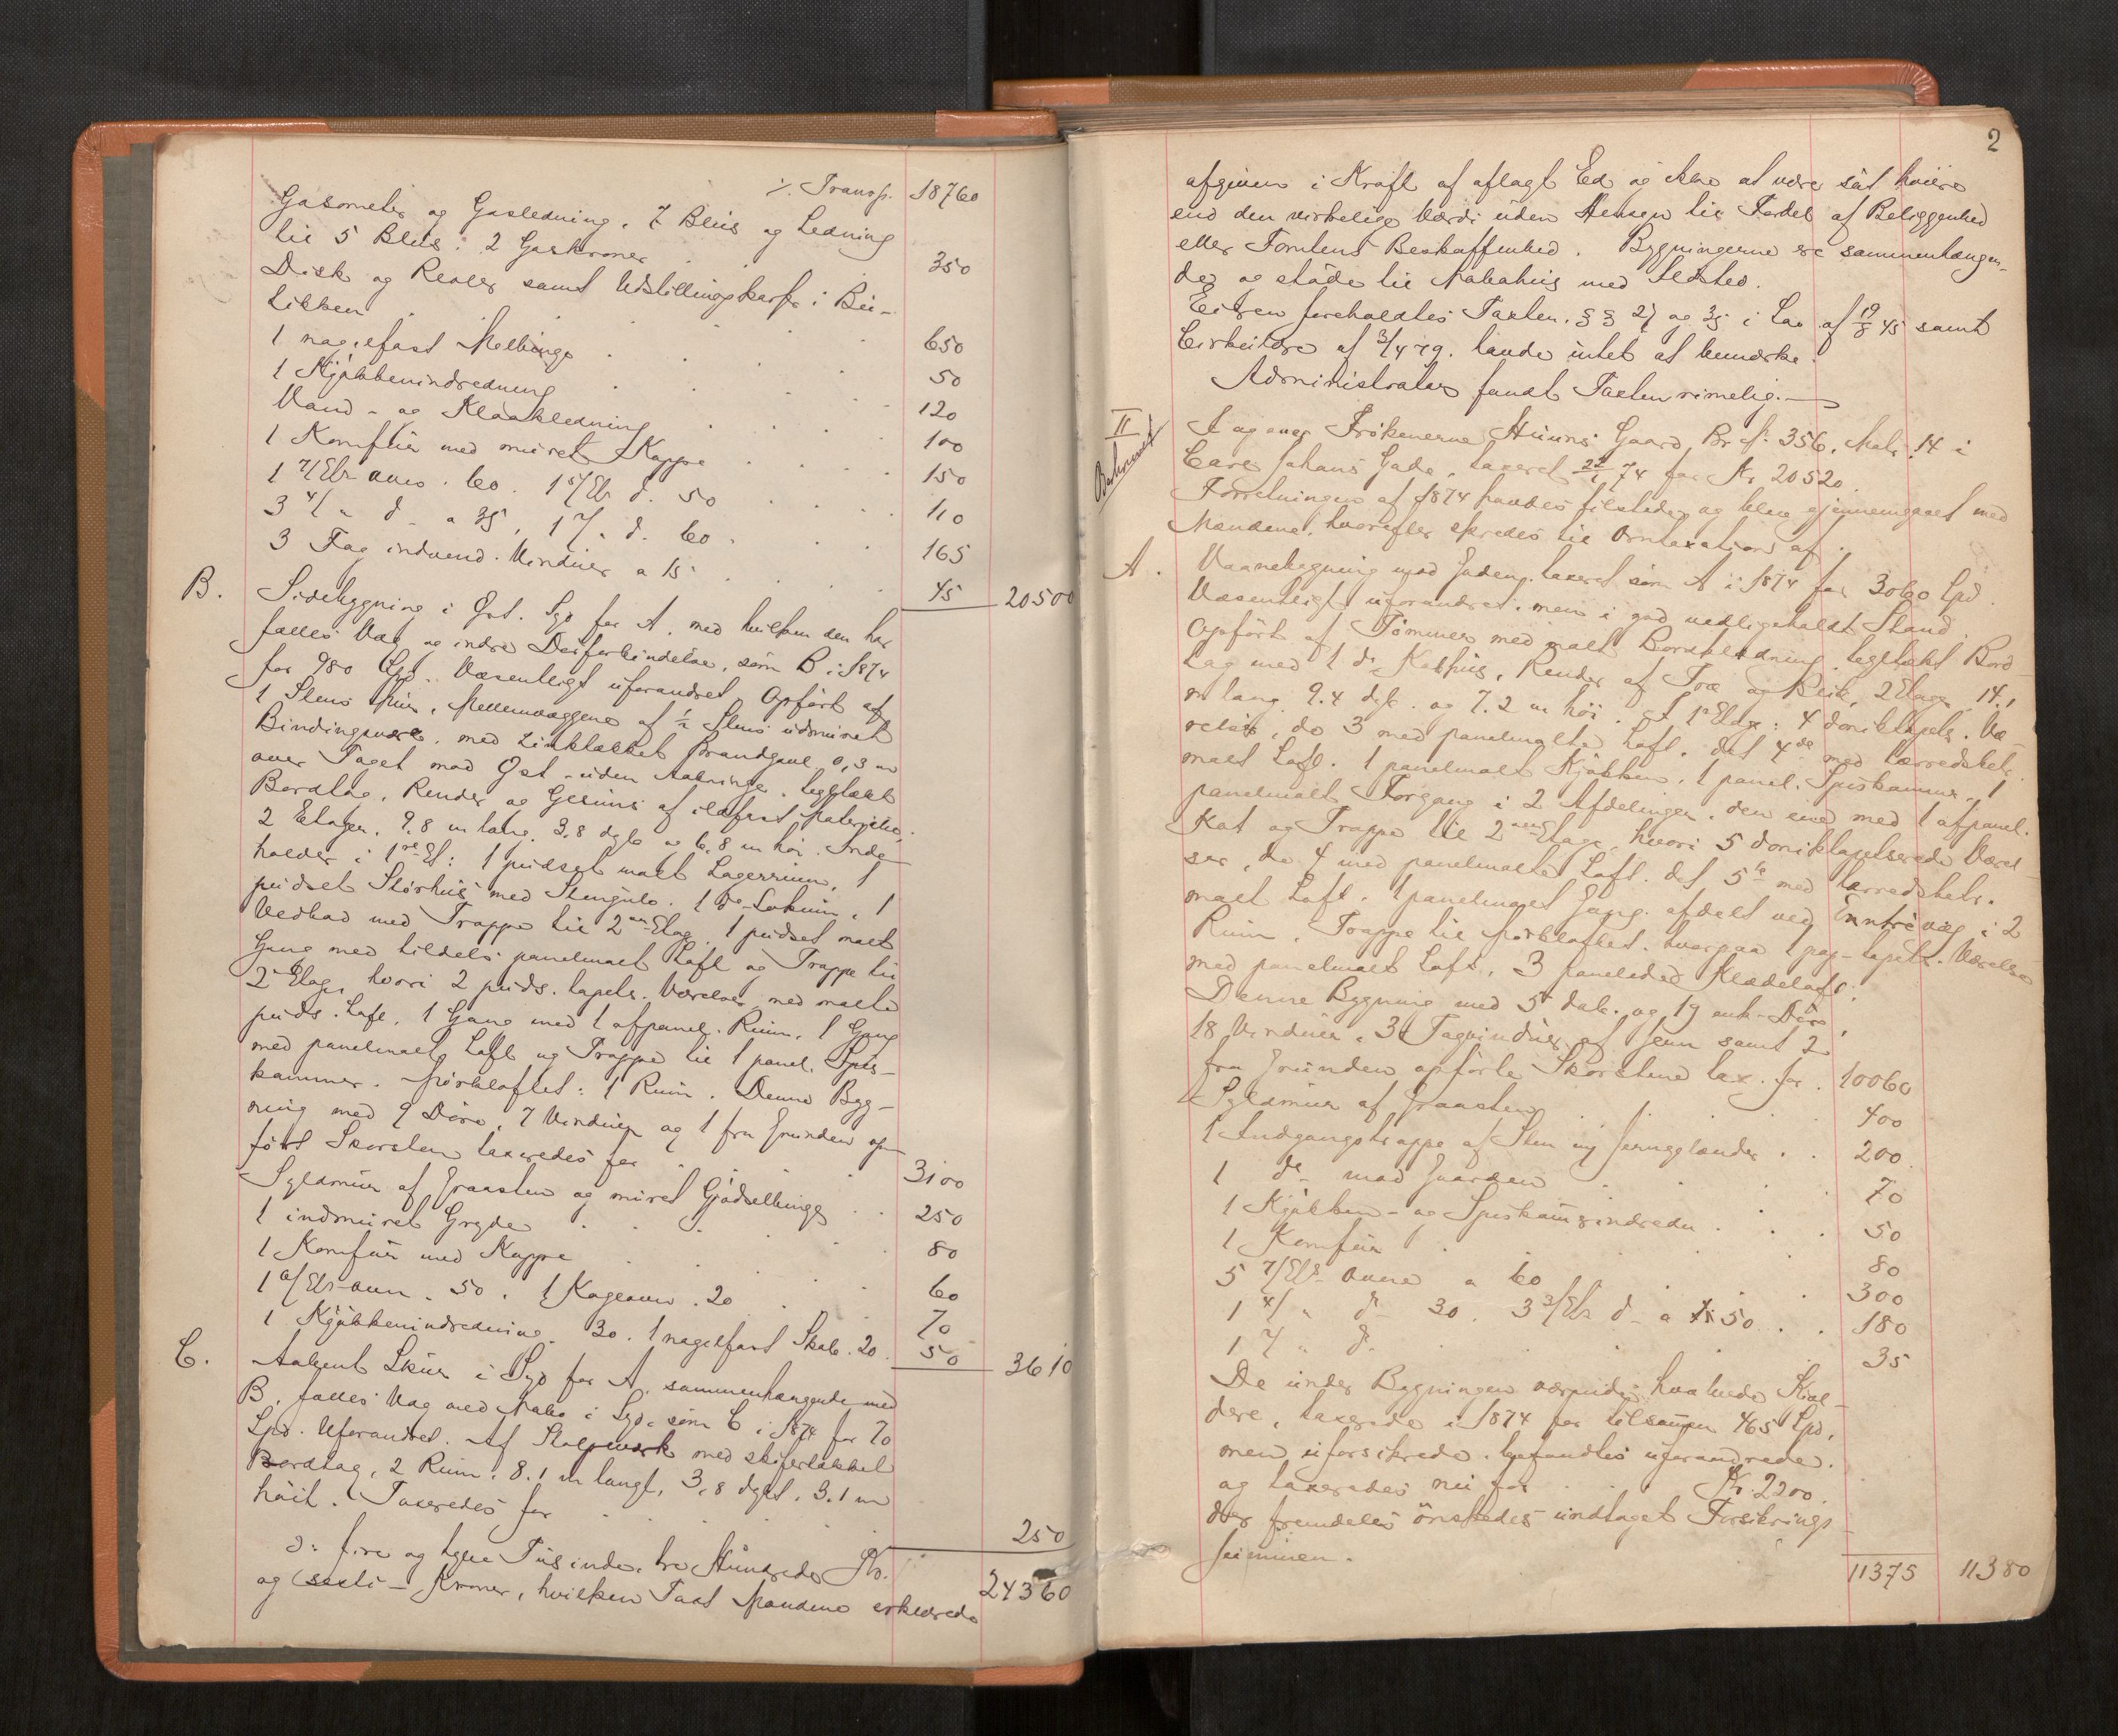 ./. Transp. 18760
Gasometer og Gasledning, 7 Blus og Ledning
til 5 Blus. 2 Gaskroner . . 350
Disk og Reoler samt Udstillingskasse i Bu-
tikken . . . . 650
1 nagelfast Melbinge . . . 50
1 Kjøkkenindredning . . . 120
Vand- og Kloakledning . . . 100
1 Komfur med muret Kappe . . 150
1 7/Etr ovn . 60. 1 5/Etr do. 50 . . 110
3 4/ " do a 35, 1 7/ " do. 60 . . 165
3 Fag indvend. Vinduer a 15 . . . 45 20500
B. Sidebygning i Øst. Syd for A, med hvilken den har
fælles Væg og indre Dørforbindelse, som B i 1874
for 980 Spd. Væsentligt uforandret. Opført af
1 Stens Mur, Mellemvæggene af 1/2 Stens udmuret
Bindingsverk, med zinktækket Brandgavl 0,3 m
over Taget mod Øst - uden Aabninger, tegltækt
Bordtag, Render og Gesims af ildfast Materiale,
2 Etager, 9.8 m lang, 3.8 dyb og 6.8 m høi. Inde-
holder i 1ste Et: 1 pudset malt Lagerrum, 1
pudset Størhus med Stengulv. 1 do Lokum, 1
Vedbod med Trappe til 2den Etag. 1 pudset malt
Gang med tildels panelmalt Loft og Trappe til
2 Etage, hvori 2 puds. tapets. Værelser med malte
puds. Loft, 1 Gang med 1 afpanel. Rum, 1 Gang
med panelmalt Loft og Trappe til 1 panel. Spis-
kammer. Mørkloftet: 1 Rum. Denne Byg-
ning med 9 Døre, 7 Vinduer og 1 fra Grunden op-
ført Skorsten taxeredes for . . 3100
Syldmur af Graasten og muret Gjødselbinge . . 250
1 indmuret Gryde . . . 80
1 Komfur med Kappe . . . 60
1 6/Etr-ovn . 50 . 1 Kageovn . 20 . . 70
1 Kjøkkenindredning . 30. 1 nagelfast Skab. 20 . 50 3610
C. Aabent Skur i Syd for A, sammenhængende med
B, fælles Væg med Nabo i Syd, som C i 1874 for 70
Spd. Uforandret. Af Stolpeverk med skifertækket
Bordtag, 2 Rum. 8.1 m langt, 3,8 dybt, 3.1 m
høit. Taxeredes for . . . . 250
ɔ: fire og tyve Tusinde, tre Hundrede Kr. 24360
og sexti - Kroner, hvilken Taxt Mændene erklærede
2
afgiven i Kraft af aflagt Ed og ikke at være sat høiere
end den virkelige Værdi uden Hensyn til Fordel af Beliggenhed
eller Tomtens Beskaffenhed. Bygningerne ere sammenhængen-
de og støde til Nabohus med Ildsted.
Eieren foreholdtes Taxten. § § 27 og 35 i Lov af 19/8 45 samt
Cirkulære af 3/4 79. havde intet at bemærke.
Administrator fandt Taxten rimelig.
II
Frøkenerne Huuns Gaard, Br. No. 356, Matr. 14 i
Carl Johans Gade, taxeret 22/1 74 for Kr. 20520.
Forretningen af 1874 havdes tilstede og blev gjennemgaaet med
Mændene, hvorefter skredes til Omtaxation af:
A. Vaanebygning mod Gaden, taxeret som A i 1874 for 3060 Spd.
Væsentligt uforandret, men i god vedligeholdt Stand.
Opført af Tømmer med malt Bordklædning, tegltækt Bord-
tag med 1 do Kathus, Render af Træ og Blik, 2 Etager, 14.1
m lang, 9.4 dyb. og 7.2 m høi. I 1ste Etage: 4 doriktapets. Væ-
relser, de 3 med panelmalte Loft. det 4de med lærredsbetr.
malt Loft. 1 panelmalt Kjøkken, 1 panel. Spiskammer, 1
panelmalt Forgang i 2 Afdelinger, den ene med 1 afpanel.
Kot og Trappe til 2den Etage, hvori 5 doriktapetserede Værel-
ser, de 4 med panelmalte Loft. det 5te med lærredsbetr.
malt Loft, 1 panelmalt Gang, afdelt ved Entrévæg i 2
Rum, Trappe til Mørkloftet, hvorpaa 1 pap-tapets. Værelse
med panelmalt Loft, 3 panelede Klædeloft.
Denne Bygning med 5 dob. og 19 enk. Døre,
18 Vinduer, 3 Tagvinduer af Jern samt 2
fra Grunden opførte Skorstene tax. for . 10060
Syldmur af Graasten . . . . 400
1 Indgangstrappe af Sten m/ Jerngelænder . . 200
1 do - mod Gaarden . . . 70
1 Kjøkken- og Spiskammerindredn. . . . 50
1 Komfur . . . . 80
5 7/Etr. ovne a 60 . . . 300
1 4/ " do 30. 3 3/Etr do a 50 . . 180
1 7 " do . . . 35
De under Bygningen værende hvælvede Kjæl-
dere, taxerede i 1874 for tilsammen 465 Spd,
men uforsikrede, befandtes uforandrede
og taxeredes nu for . . Kr. 2200.
der fremdeles ønskedes undtaget Forsikrings-
summen. 11375 11380